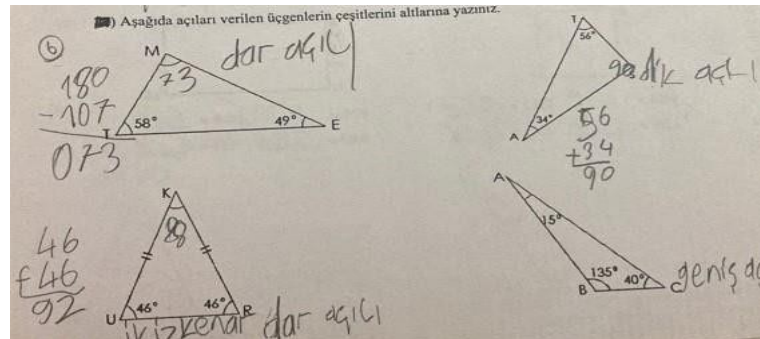 ) Aşağıda açıları verilen üçgenlerin çeşitlerini altlarına yazınız.
6
M
73
dar açılı
180
-107
073
T
58°
49°
E
T
56°
90
dik açılı
A
34°
56
+34
90
K
88
46
+46
92
U
46°
46°
R
ikizkenar dar açılı
A
15°
135°
40°
B
C
geniş aç